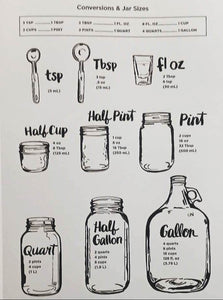 Conversions & Jar Sizes
3 TSP 1 TBSP
2 TBSP 1 FL. OZ
8 FL. OZ 1 CUP
2 CUPS 1 PINT
2 PINTS 1 QUART
4 QUARTS 1 GALLON
tsp
Tbsp
fl oz
1 tsp
2 Tbsp
6 tsp
(30 mL)
Half Cup
Half Pint
Pint
4 oz
8 Tbsp
1 cup
8 oz
16 Tbsp
2 cups
16 oz
32 Tbsp
Quart
2 pints
4 cups
(1 L)
Half Gallon
2 quarts
4 pints
8 cups
(1.9 L)
Gallon
4 quarts
8 pints
16 cups
128 fl. oz